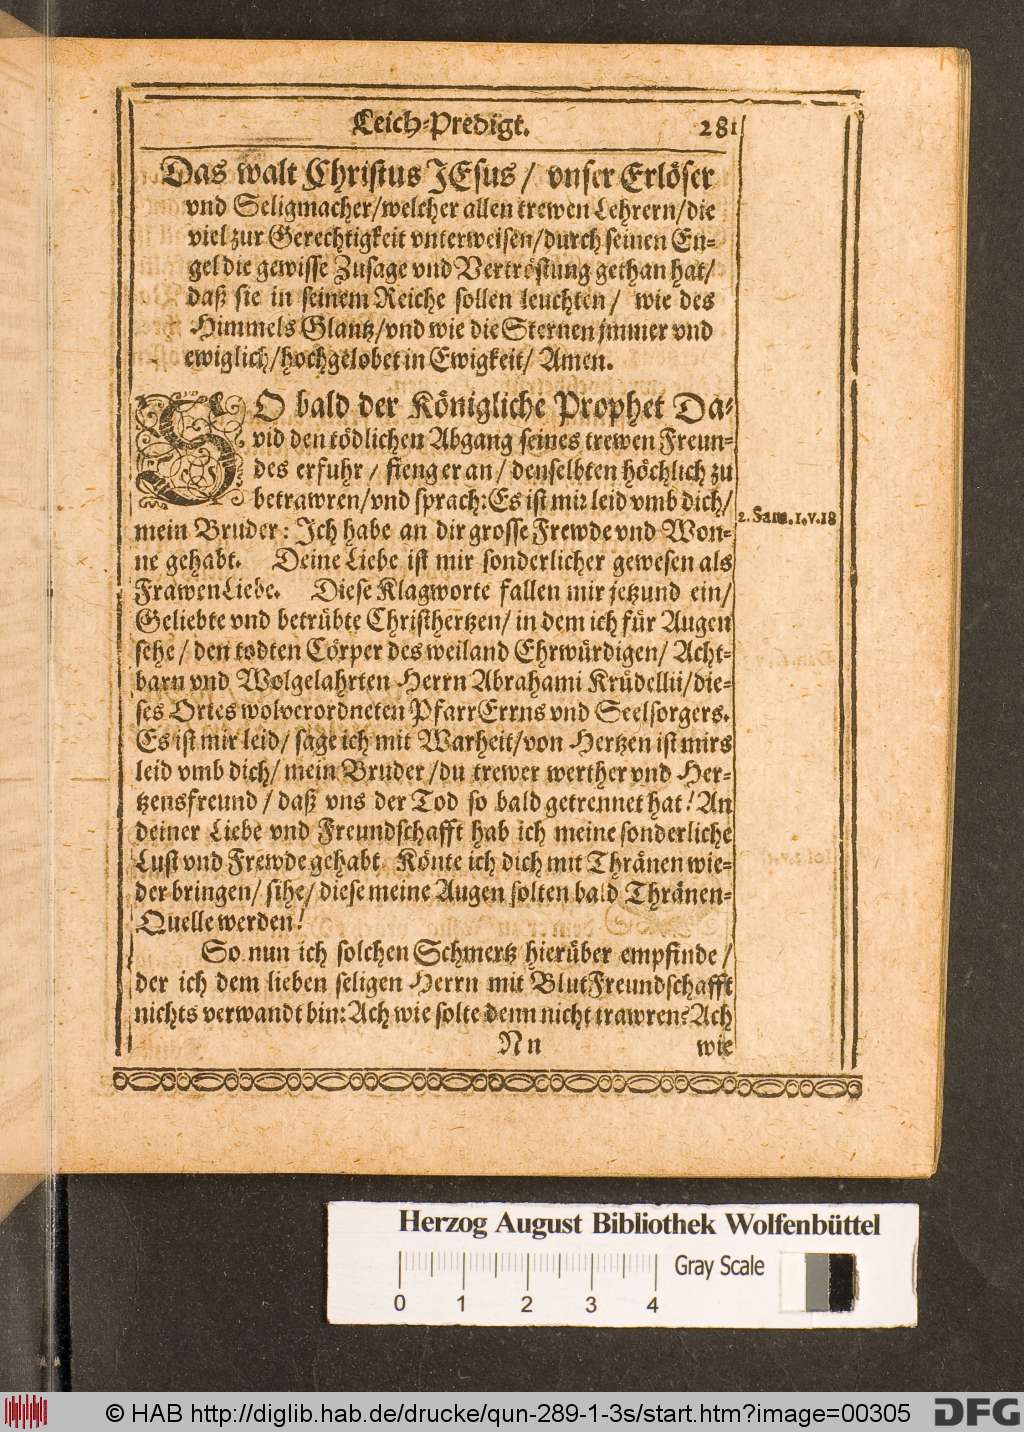 Leich-Predigt. 281
Das walt Christus JEsus / vnser Erlöser
vnd Seligmacher/welcher allen trewen Lehrern/die
viel zur Gerechtigkeit vnterweisen/durch seinen En-
gel die gewisse Zusage vnd Vertröstung gethan hat/
daß sie in seinem Reiche sollen leuchten / wie des
Himmels Glantz/vnd wie die Sternen jmmer vnd
ewiglich/hochgelobet in Ewigkeit/ Amen.
SO bald der Königliche Prophet Da-
vid den tödlichen Abgang seines trewen Freun-
des erfuhr / fieng er an / denselbten höchlich zu
betrawren/vnd sprach: Es ist mir leid vmb dich/
2. Sam. 1. v. 18
mein Bruder: Jch habe an dir grosse Frewde vnd Won-
ne gehabt. Deine Liebe ist mir sonderlicher gewesen als
FrawenLiebe. Diese Klagworte fallen mir jetzund ein/
Geliebte vnd betrübte Christhertzen/ in dem ich für Augen
sehe / den todten Cörper des weiland Ehrwürdigen/ Acht-
barn vnd Wolgelahrten Herrn Abrahami Krüdellii/die-
ses Ortes wolverordneten PfarrErrns vnd Seelsorgers.
Es ist mir leid/ sage ich mit Warheit/von Hertzen ist mirs
leid vmb dich/ mein Bruder /du trewer werther vnd Her-
tzensfreund / daß vns der Tod so bald getrennet hat! An
deiner Liebe vnd Freundschafft hab ich meine sonderliche
Lust vnd Frewde gehabt. Könte ich dich mit Thränen wie-
der bringen/ sihe/ diese meine Augen solten bald Thränen-
Quelle werden!
So nun ich solchen Schmertz hierüber empfinde /
der ich dem lieben seligen Herrn mit BlutFreundschafft
nichts verwandt bin: Ach wie solte denn nicht trawren? Ach
Nn wie
Herzog August Bibliothek Wolfenbüttel
Gray Scale
0 1 2 3 4
© HAB http://diglib.hab.de/drucke/qun-289-1-3s/start.htm?image=00305 DFG